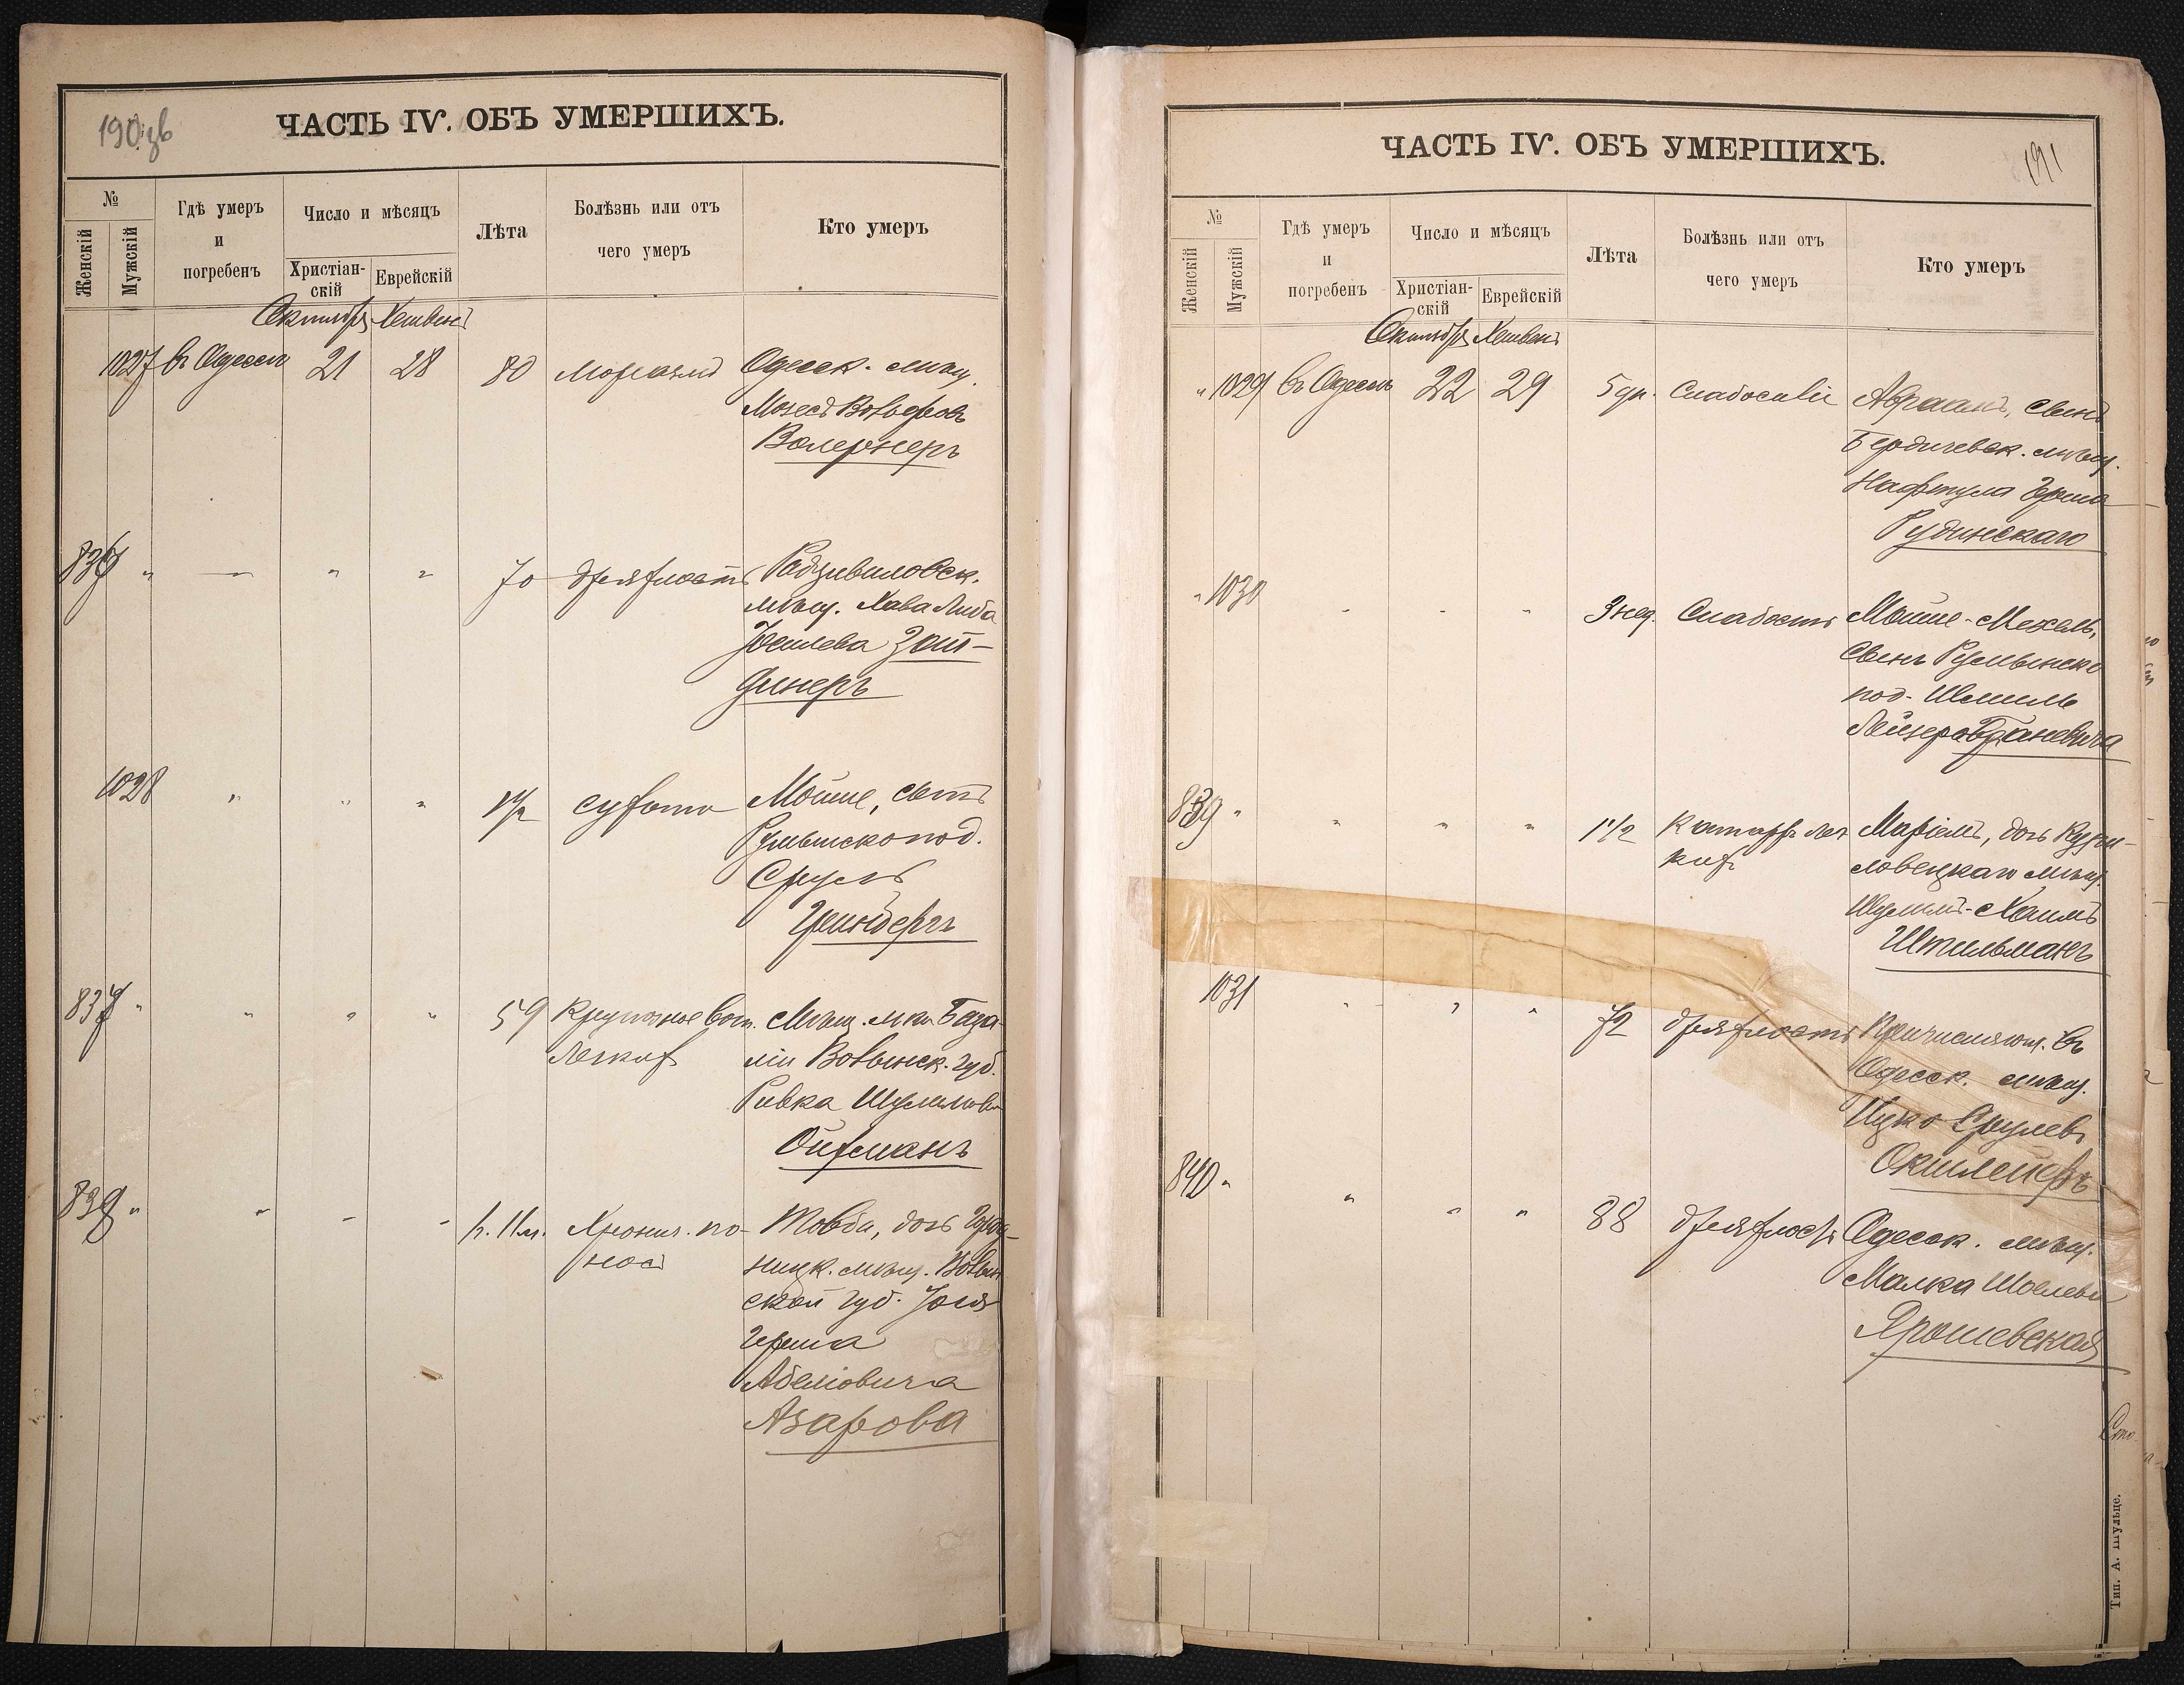 190 зв
ЧАСТЬ IV. ОБЪ УМЕРШИХЪ.
№
Женскій
Мужскій
Гдѣ умеръ
и
погребенъ
Число и мѣсяцъ
Христіан-
скій
Еврейскій
Лѣта
Болѣзнь или отъ
чего умеръ
Кто умеръ
Октября Хешвенъ
1027 въ Одессѣ 21 28 80 Моразмъ Одесск. мѣщ.
Мозесъ Вольфовъ
Валернеръ
836 " — " " 70 дряхлость Радзивиловск.
мѣщ. Хава Либа
Іоселева
динеръ
1028 " " " Мойше, сынъ
Румынско под.
Сруль
837 " " " " 59 Крупозное восп. Мѣщ. мка База-
легкихъ ліи Волынск. губ.
Ривка Шулимова
Ойхманъ
838 " " " " 11м. Хронич. по- Товба, дочь
носъ ницк. мѣщ. Волын
ской губ. Іося
Герша
Абелiовича
Азарова
191
ЧАСТЬ IV. ОБЪ УМЕРШИХЪ.
№
Женскій
Мужскій
Гдѣ умеръ
и
погребенъ
Число и мѣсяцъ
Христіан-
скій
Еврейскій
Лѣта
Болѣзнь или отъ
чего умеръ
Кто умеръ
Октября Хешвенъ
" 1029 въ Одессѣ 22 29 5 дн. Слабосиліе Абрамъ, сынъ
Бердичевск. мѣщ.
Нафтула Герша
Рудинскаго
" 1030 " " " 3 нед. Слабость Мойше-Мехель,
сынъ Румынско
под. Шмиль
Лейзеровъ
839 " " " " 1 1/2 Катарръ лег Маріамъ, дочь Кузми-
кихъ ловецкаго мѣщ.
Шулимъ-Хаимъ
Штильманъ
1031 " " " 72 дряхлость Причисляющ. въ
Одесск. мѣщ.
Ицко Срулевъ
Окшлейеръ
840 " " " " 88 дряхлость Одесск. мѣщ.
Малка Шоелева
Ярошевская
Тип. А. Шульце.